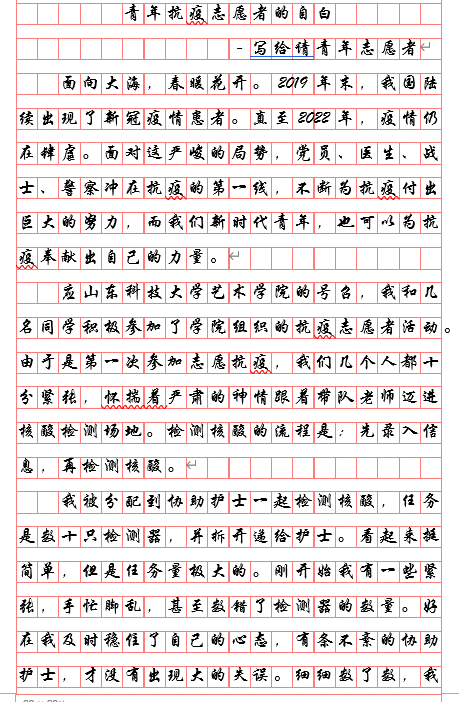 青年抗疫志愿者的自白
-写给情青年志愿者
面向大海，春暖花开。2019年末，我国陆
续出现了新冠疫情患者。直至2022年，疫情仍
在肆虐。面对这严峻的局势，党员、医生、战
士、警察冲在抗疫的第一线，不断为抗疫付出
巨大的努力，而我们新时代青年，也可以为抗
疫奉献出自己的力量。
应山东科技大学艺术学院的号召，我和几
名同学积极参加了学院组织的抗疫志愿者活动。
由于是第一次参加志愿抗疫，我们几个人都十
分紧张，怀揣着严肃的神情跟着带队老师迈进
核酸检测场地。检测核酸的流程是：先录入信
息，再检测核酸。
我被分配到协助护士一起检测核酸，任务
是数十只检测器，并拆开递给护士。看起来挺
简单，但是任务量极大的。刚开始我有一些紧
张，手忙脚乱，甚至数错了检测器的数量。好
在我及时稳住了自己的心态，有条不紊的协助
护士，才没有出现大的失误。细细数了数，我